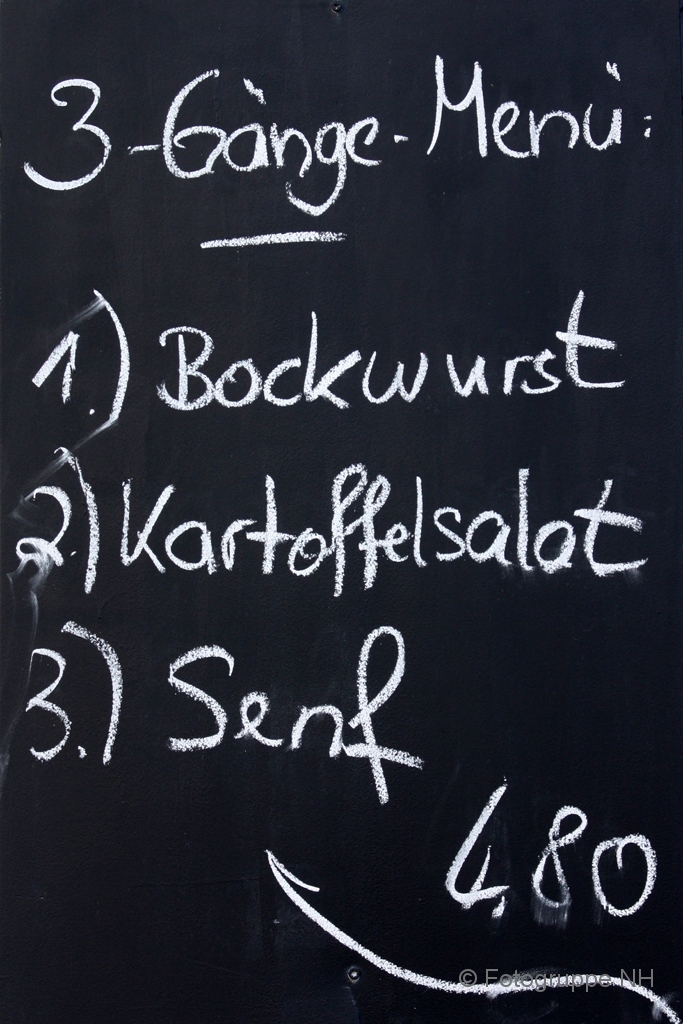 3-Gänge-Menü:
1.) Bockwurst
2.) Kartoffelsalat
3.) Senf
4,80
© Fotogruppe NH